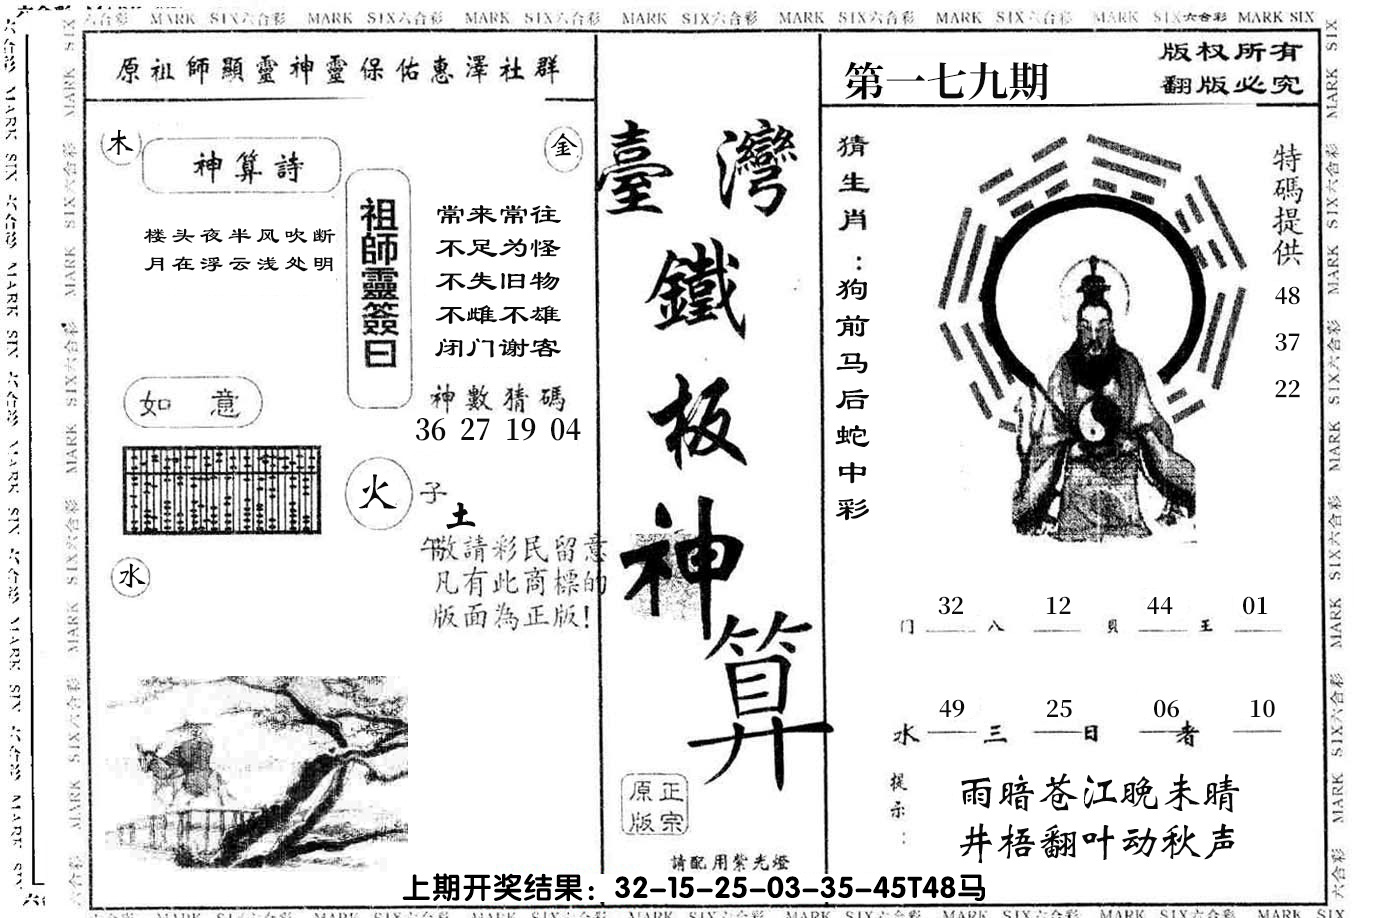 MARK SIX六合彩 MARK SIX六合彩 MARK SIX六合彩 MARK SIX六合彩 MARK SIX六合彩 MARK SIX六合彩 MARK SIX六合彩 MARK SIX
原祖師顯靈神靈保佑惠澤社群
木
金
神算詩
楼头夜半风吹断
月在浮云浅处明
祖師靈簽曰
常来常往
不足为怪
不失旧物
不雌不雄
闭门谢客
神數猜碼
36 27 19 04
如意
火
子
土
午
水
敬請彩民留意
凡有此商標的
版面為正版!
臺灣
鐵
板
神
算
正宗
原版
請配用紫光燈
第一七九期
版权所有
翻版必究
猜生肖:狗前马后蛇中彩
特碼提供
48
37
22
32 12 44 01
门 八 貝 王
49 25 06 10
水 三 日 者
提示:
雨暗苍江晚未晴
井梧翻叶动秋声
上期开奖结果：32-15-25-03-35-45T48马